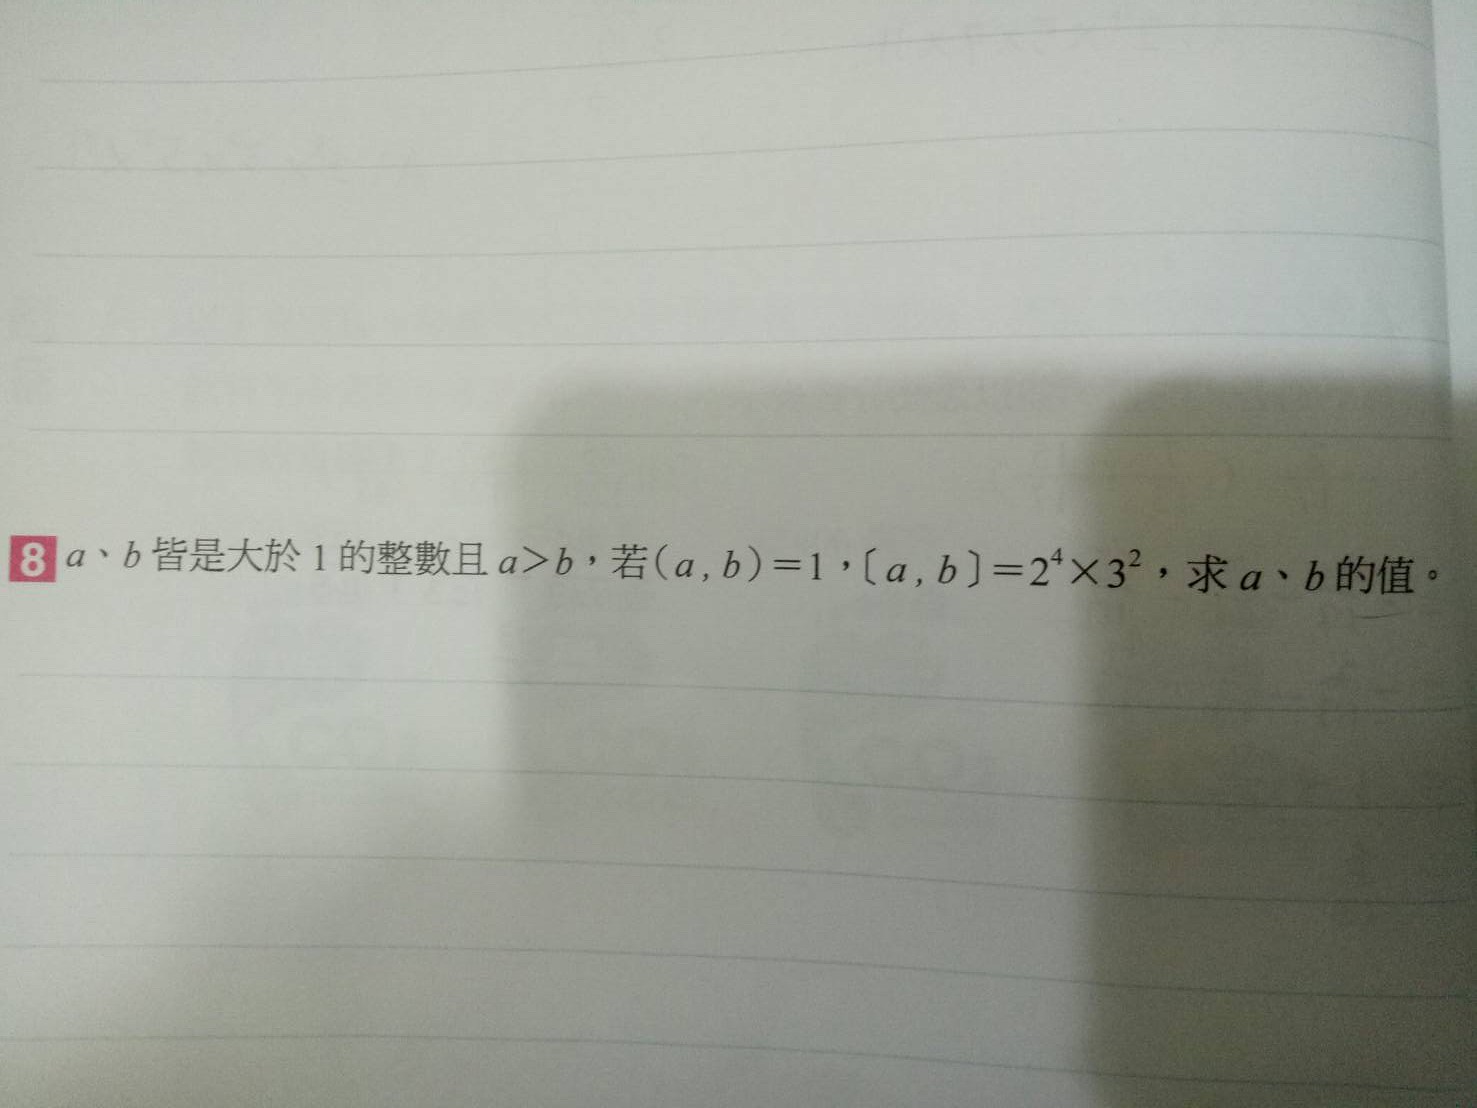 8 a、b 皆是大於 1 的整數且 a>b，若(a , b)=1，〔a , b〕=2⁴×3²，求 a、b 的值。